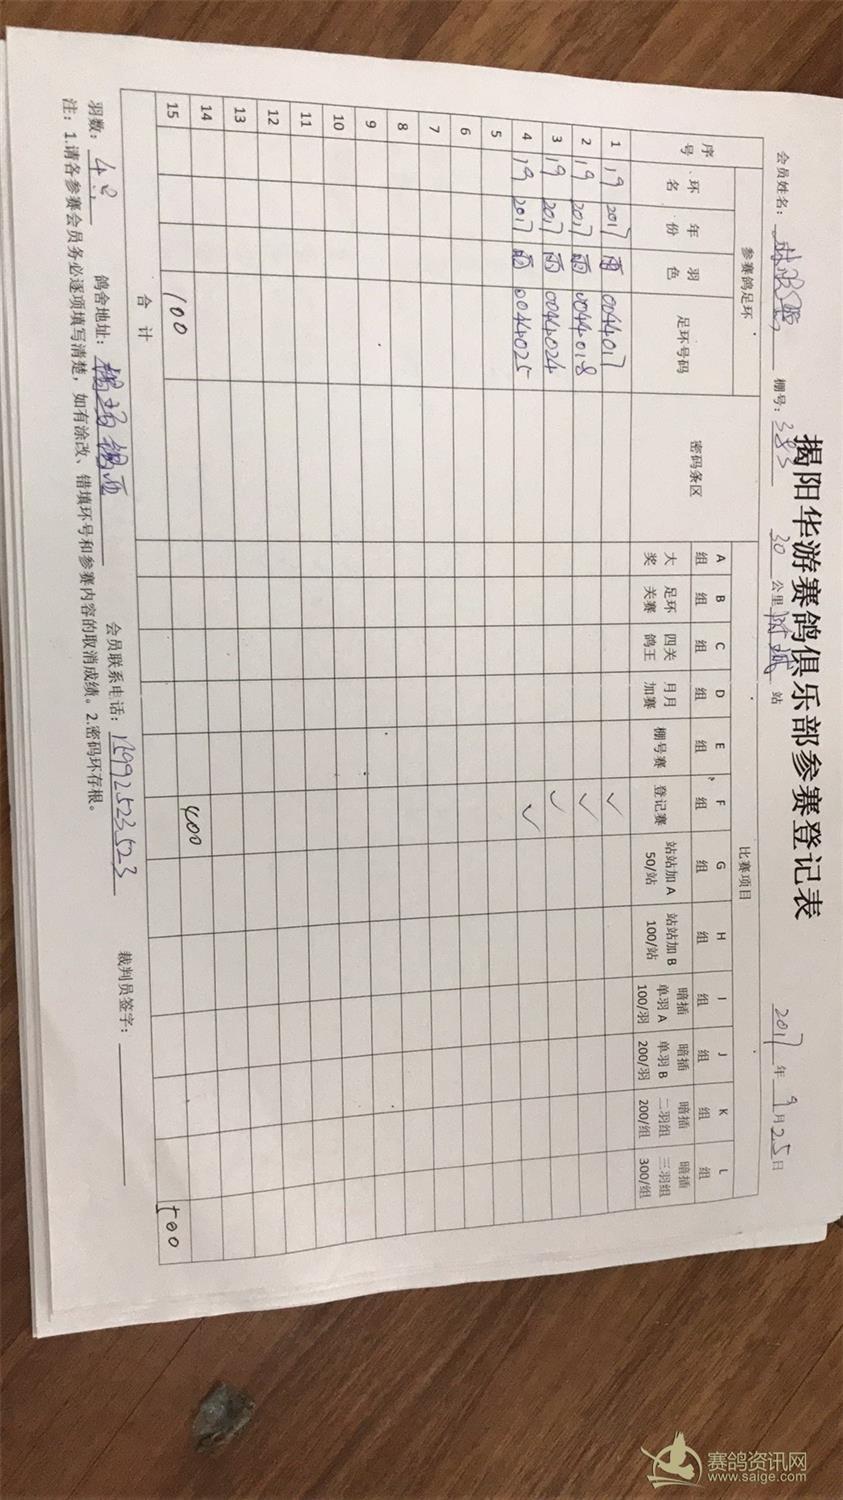 揭阳华游赛鸽俱乐部参赛登记表
会员姓名： 棚号：383 30 公里 站 2017 年 9 月 25 日
序号 参赛鸽足环 密码条区 比赛项目
环名 年份 羽色 足环号码 A组 B组 C组 D组 E组 F组 G组 H组 I组 J组 K组 L组
大奖 足环关赛 四关鸽王 月月加赛 棚号赛 登记赛 站站加A 50/站 站站加B 100/站 暗插单羽A 100/羽 暗插单羽B 200/羽 暗插二羽组 200/组 暗插三羽组 300/组
1 19 2017 雨 0044017 ✓
2 19 2017 雨 0044018 ✓
3 19 2017 雨 0044024 ✓
4 19 2017 雨 0044025 ✓
5
6
7
8
9
10
11
12
13
14 400
15 100 500
合计
羽数：4 鸽舍地址： 会员联系电话：13992523523 裁判员签字：
注：1.请各参赛会员务必逐项填写清楚，如有涂改、错填环号和参赛内容的取消成绩。2.密码环存根。
赛鸽资讯网
www.saige.com